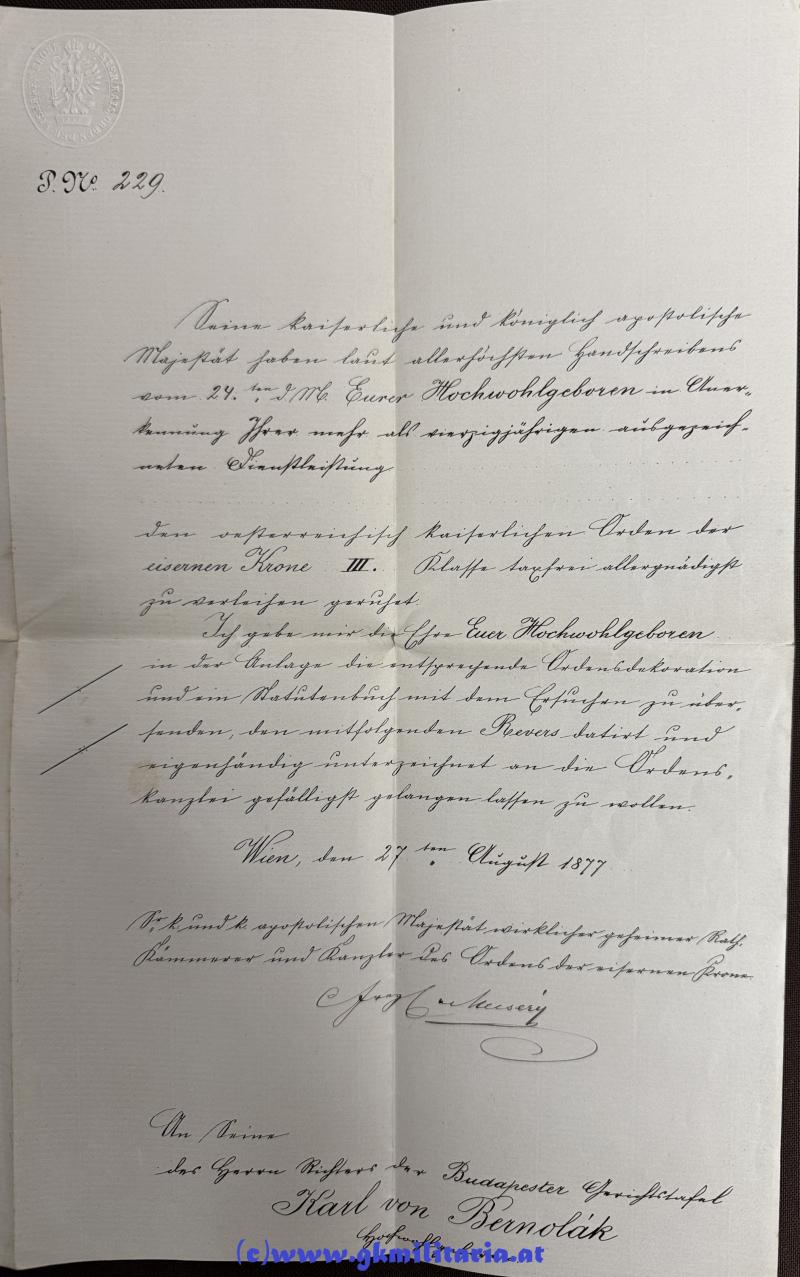 P. No 229.
Seine kaiserliche und königlich apostolische
Majestät haben laut allerhöchsten Handschreibens
vom 24. ten d. M. Eurer Hochwohlgeboren in Aner-
kennung Ihrer mehr als vierzigjährigen ausgezeich-
neten Dienstleistung
den oesterreichisch kaiserlichen Orden der
eisernen Krone III. Klasse taxfrei allergnädigst
zu verleihen geruhet.
Ich gebe mir die Ehre Euer Hochwohlgeboren
in der Anlage die entsprechende Ordensdekoration
und ein Statutenbuch mit dem Ersuchen zu über-
senden, den mitfolgenden Revers datirt und
eigenhändig unterzeichnet an die Ordens-
kanzlei gefälligst gelangen lassen zu wollen.
Wien, den 27 ten August 1877
Sr. k. und k. apostolischen Majestät wirklicher geheimer Rath,
Kämmerer und Kanzler des Ordens der eisernen Krone
An Seine
des Herrn Richters der Budapester Gerichtstafel
Karl von Bernolák
(c)www.gkmilitaria.at